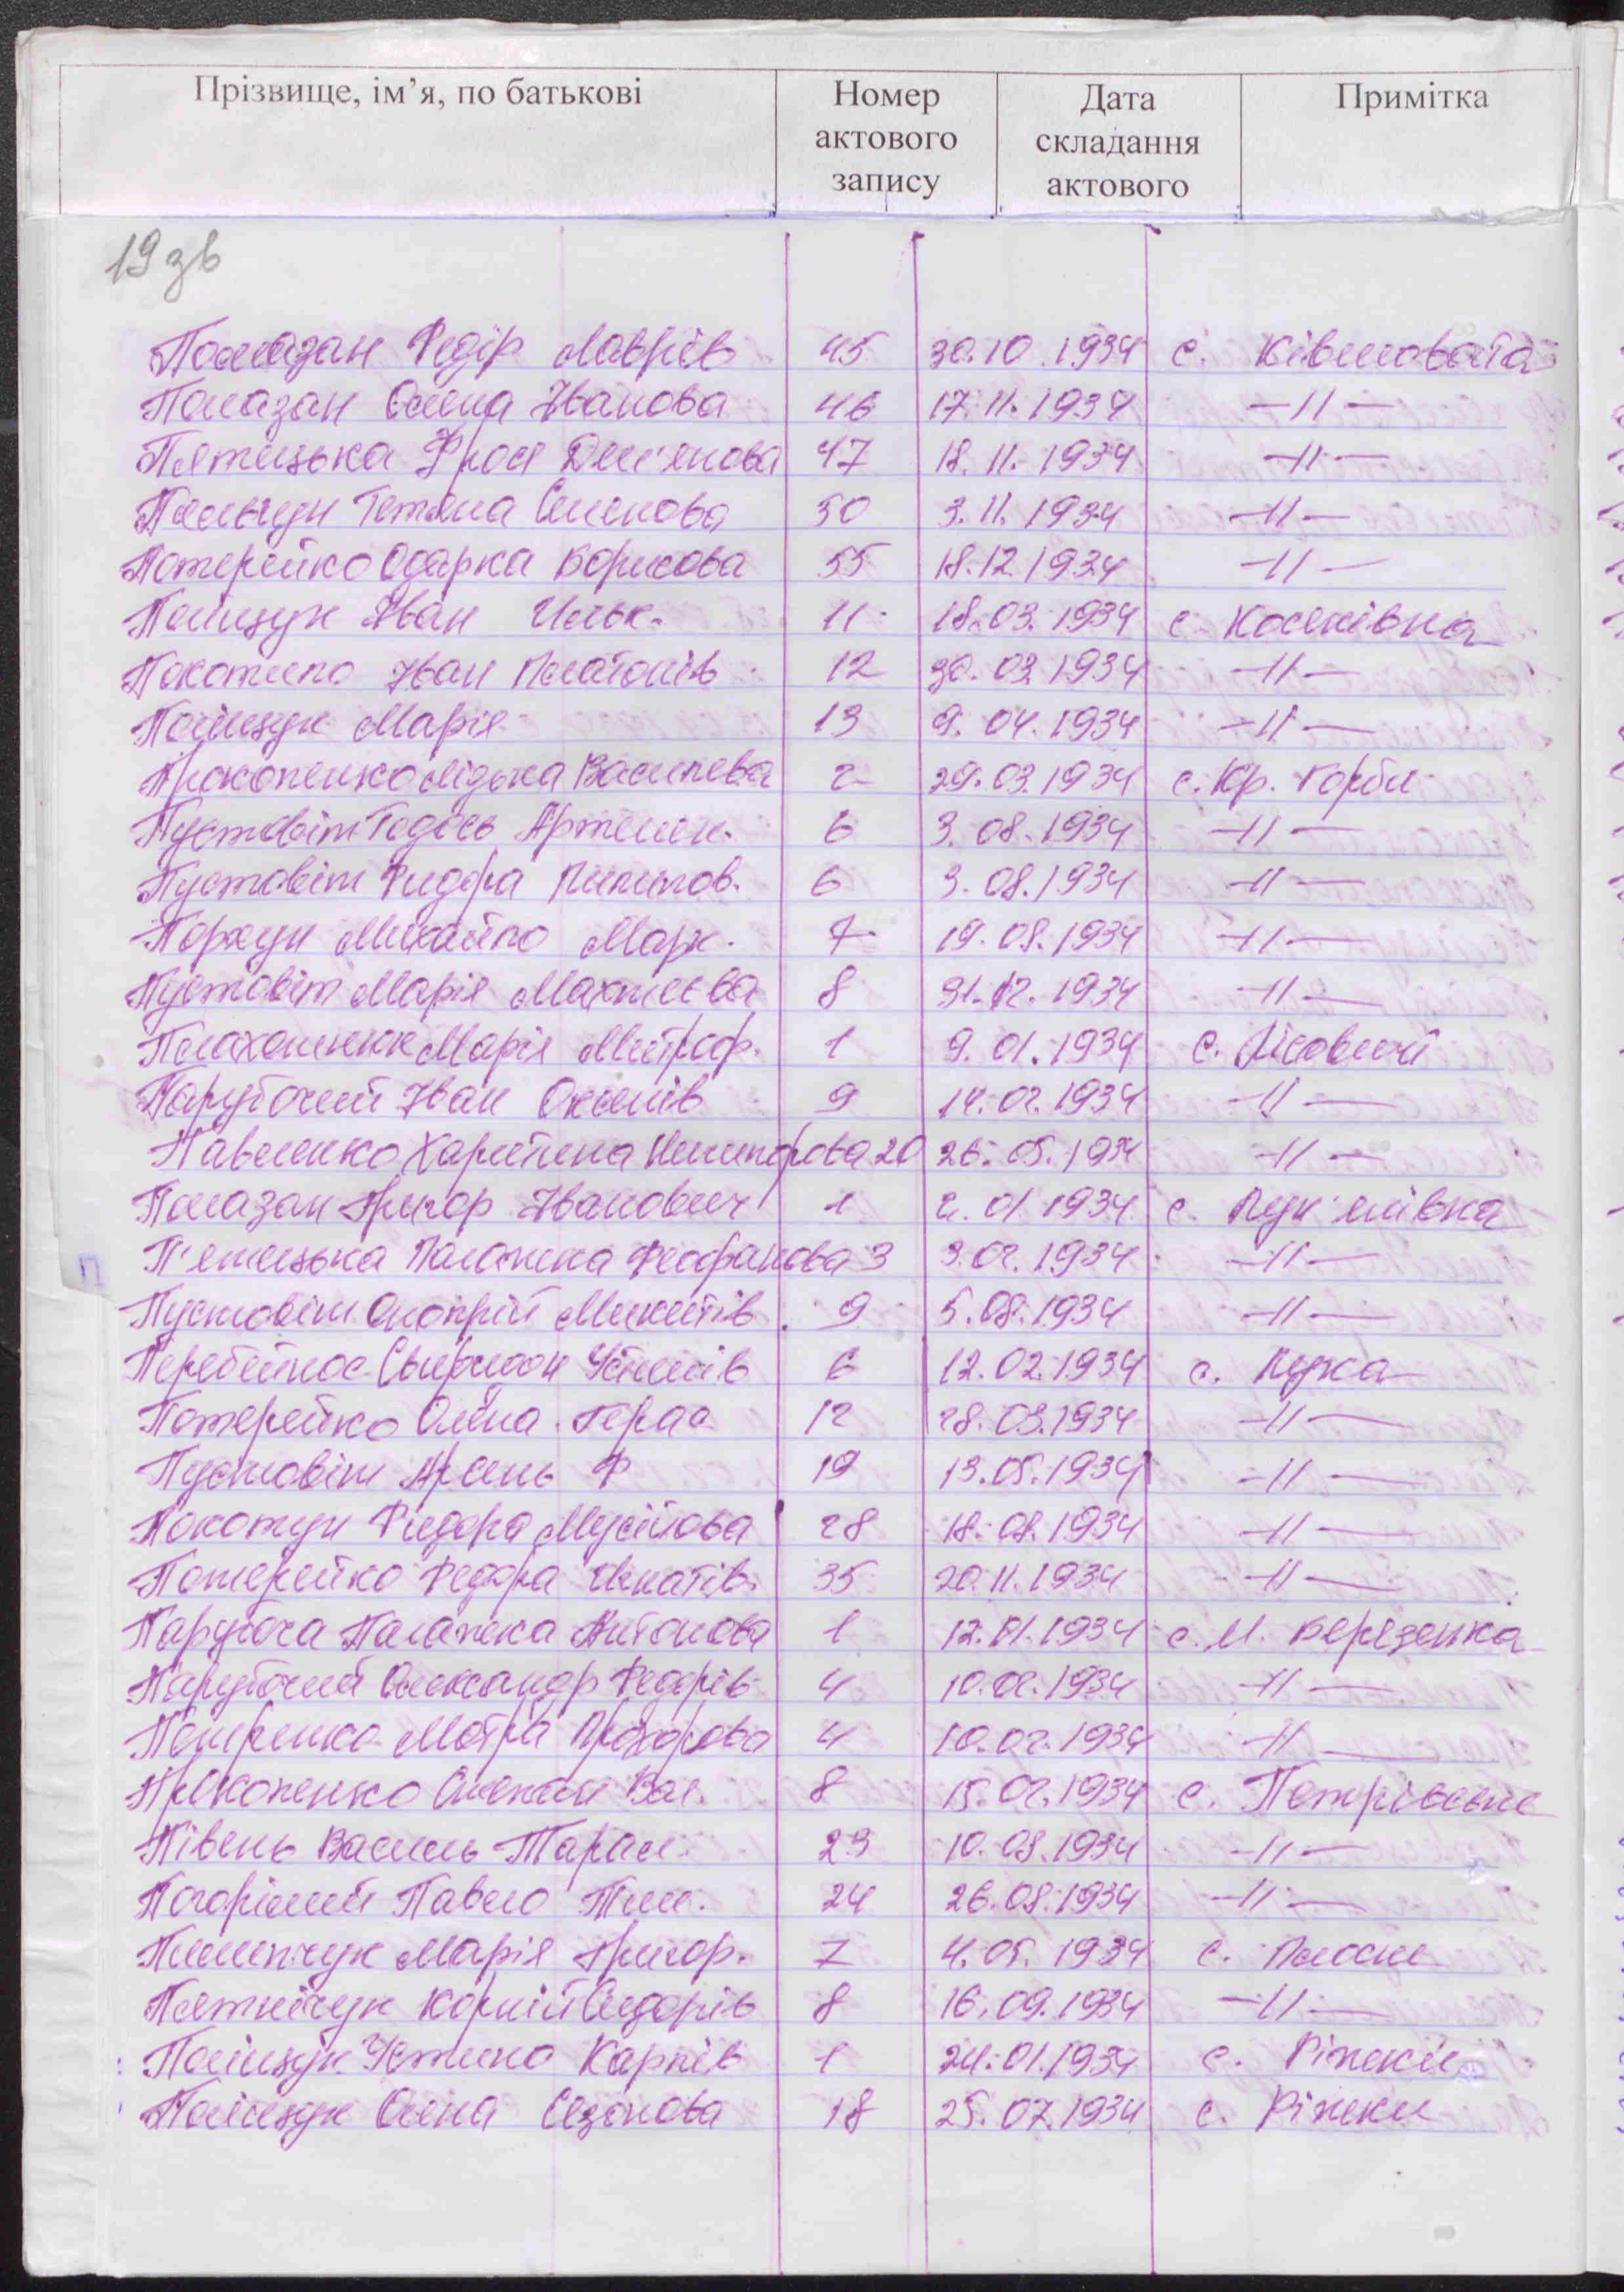 Прізвище, ім’я, по батькові Номер актового запису Дата складання актового Примітка
19 зв
Помазан Федір Лаврів 45 30.10.1934 с. Ківшовата
Помазан Олена Іванова 46 17.11.1934 -//-
Пятецька Фрося Дем'янова 47 18.11.1934 -//-
Пальгун Тетяна Семенова 50 3.11.1934 -//-
Потерейко Одарка Борисова 55 18.12.1934 -//-
Поліщук Іван Ільк. 11 18.03.1934 с. Косяківка
Покотило Іван Платонів 12 30.03.1934 -//-
Поліщук Марія 13 9.04.1934 -//-
Прокопенко Лідька Василева 2 29.03.1934 с. Кр. Горби
Пустовіт Тодось Артемон. 6 3.08.1934 -//-
Пустовіт Фидора Пилипов. 6 3.08.1934 -//-
Порхун Михайло Марк. 7 19.08.1934 -//-
Пустовіт Марія Махтеєва 8 31.12.1934 -//-
Марія Митроф. 1 9.01.1934 с. Лісовичі
Парубочий Іван Оксенів 9 14.02.1934 -//-
Павленко Харитина Ничипорова 20 26.05.1934 -//-
Помазан Григор Іванович 1 2.01.1934 с. Лук'янівка
П'ятецька Палажка Феофанова 3 3.02.1934 -//-
Пустовіт Онопрій Микитів 9 5.08.1934 -//-
Перебийнос Свиридон Устимів 6 12.02.1934 с. Лука
Потерейко Олена Герас 12 28.03.1934 -//-
Пустовіт Арсень Ф 19 13.05.1934 -//-
Покотун Фидора Мусійова 28 18.08.1934 -//-
Потерейко Федора Ігнатів 35 20.11.1934 -//-
Парубоча Палажка Антонова 1 12.01.1934 с. М. Березянка
Парубочий Олександр Федорів 4 10.02.1934 -//-
Мотря Прохорова 4 10.02.1934 -//-
Прокопенко Степан Вас. 8 15.02.1934 с. Петрівське
Півень Василь Тарас. 23 10.08.1934 -//-
Погорілий Павло Тим. 24 26.08.1934 -//-
Пилипчук Марія Григор. 7 4.05.1934 с. Плоске
Пятнічук Корній Сидорів 8 16.09.1934 -//-
Поліщук Устино Карпів 1 24.01.1934 с. Ріжки
Поліщук Олена Сазонова 18 25.07.1934 с. Ріжки
П